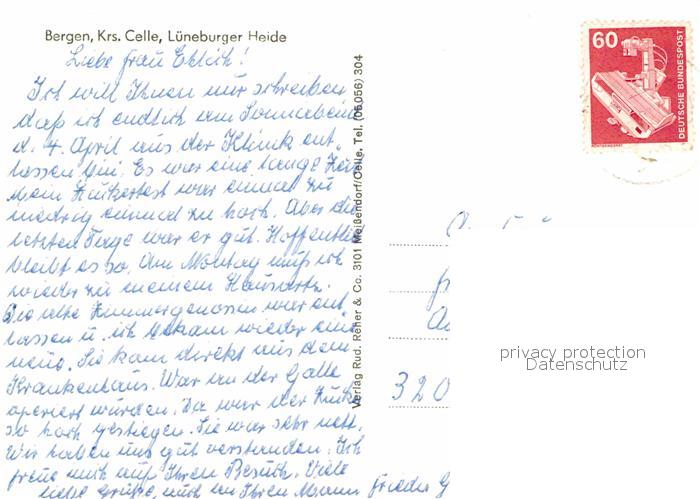 Bergen, Krs. Celle, Lüneburger Heide
Liebe Frau
Ich will Ihnen nur schreiben
daß ich endlich am Sonnabend
d. 4. April aus der Klinik ent-
lassen bin. Es war eine lange Zeit
Mein Zuckertest war einmal zu
niedrig einmal zu hoch. Aber die
letzten Tage war er gut. Hoffentlich
bleibt es so. Am Montag muß ich
wieder zu meinem Hausarzt.
Die alte Zimmergenossin war ent-
lassen u. ich bekam wieder eine
neue. Sie kam direkt aus dem
Krankenhaus. War an der Galle
operiert worden. Da war der Zucker
so hoch gestiegen. Sie war sehr nett.
Wir haben uns gut verstanden. Ich
freue mich auf Ihren Besuch. Viele
liebe Grüße, auch an Ihren Mann Frieda G
Verlag Rud. Reher & Co. 3101 Meißendorf/Celle, Tel. (05056) 304
60
DEUTSCHE BUNDESPOST
320
privacy protection
Datenschutz